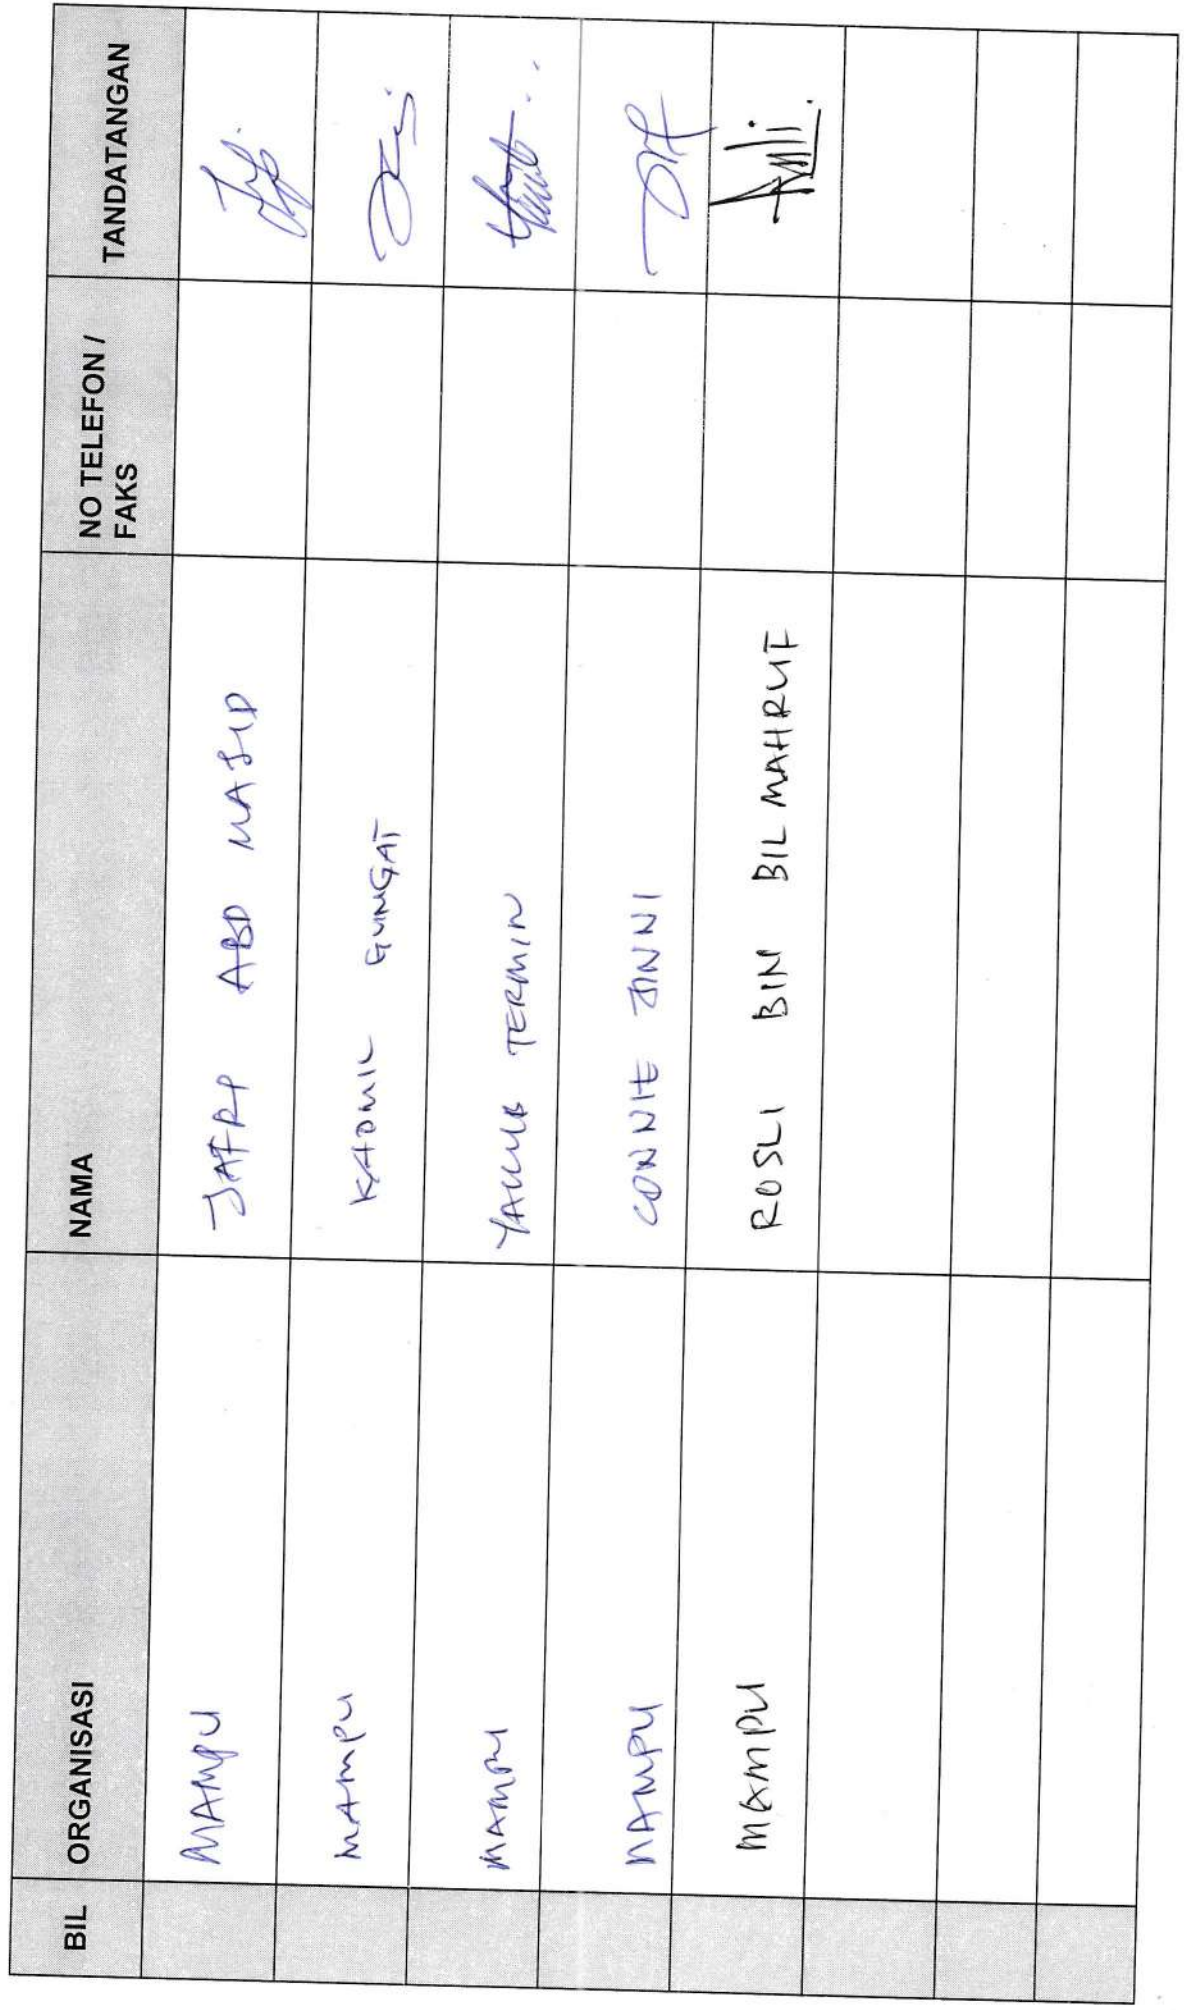 BIL ORGANISASI NAMA NO TELEFON / FAKS TANDATANGAN
MAMPU JAFRI ABD MAJID
MAMPU KADMIL GUNGAT
MAMPU YAKUB TERMIN
MAMPU CONNIE JINNI
MAMPU ROSLI BIN BILMAHRUF